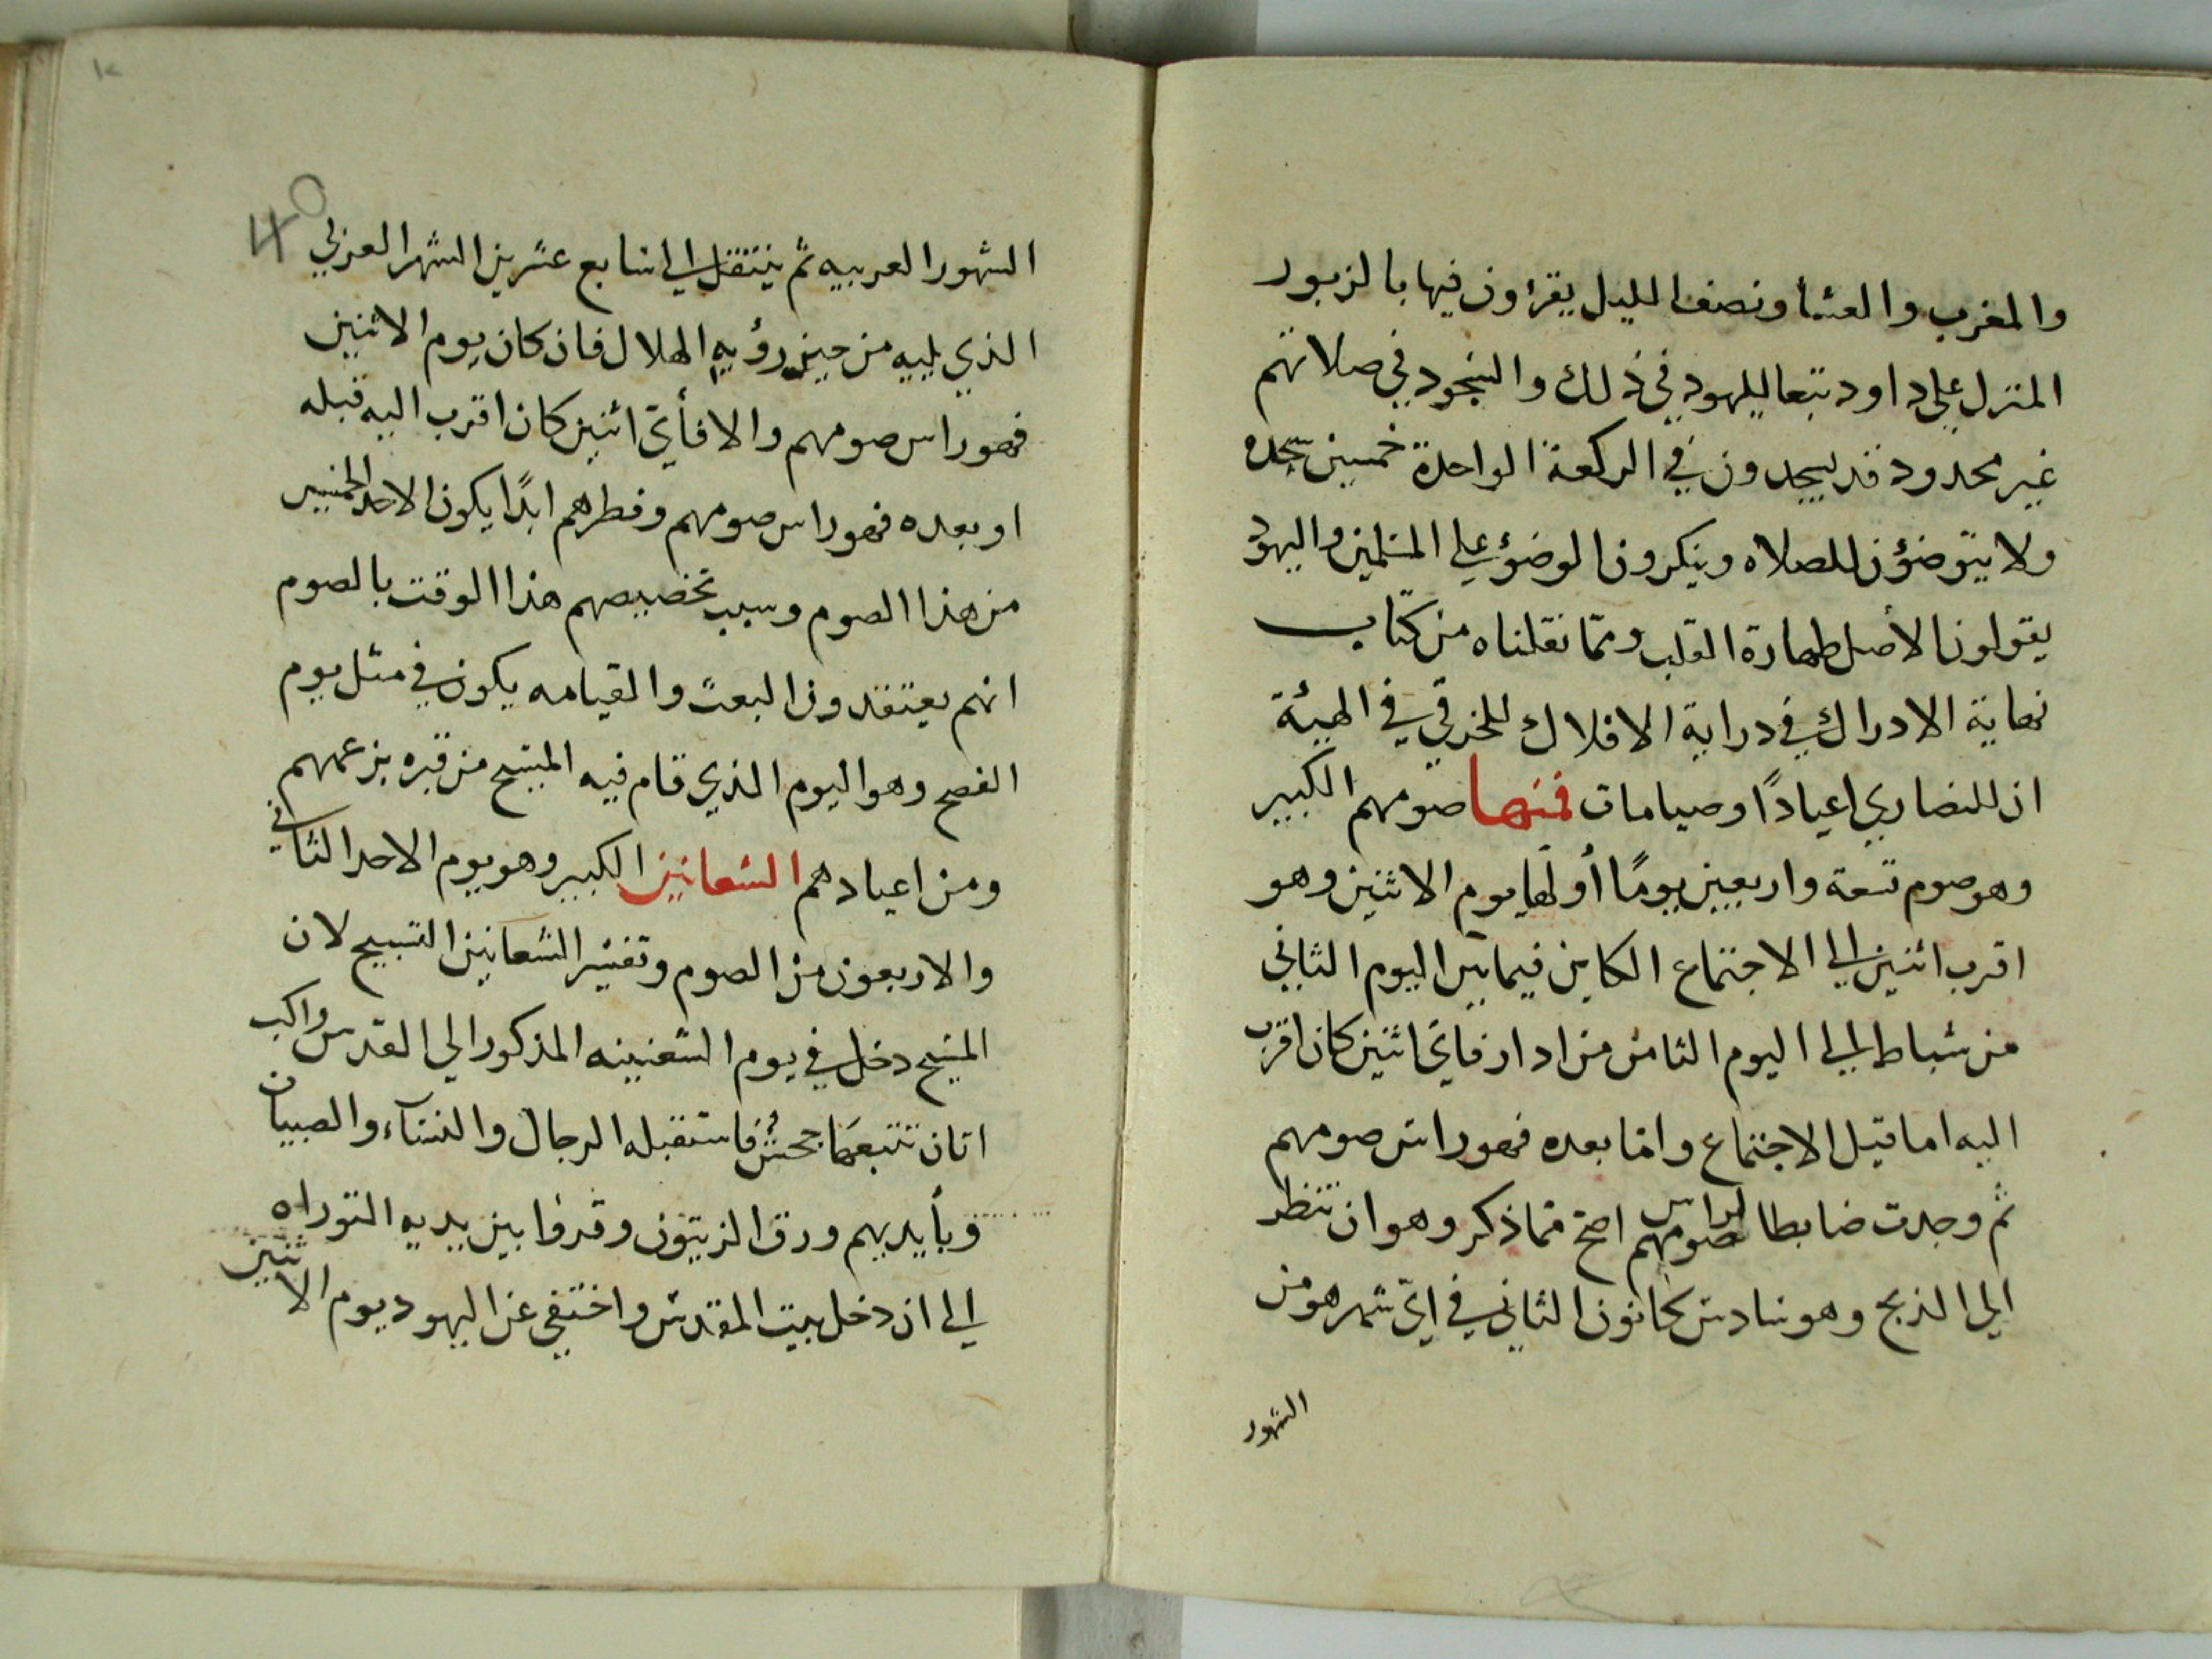 والمغرب والعشا ونصف الليل يقرؤون فيها بالزبور
المنزل علي داود تبعا لليهود في ذلك والسجود في صلاتهم
غير محدود قد يسجدون في الركعة الواحدة خمسين سجده
ولا يتوضؤن للصلاه وينكرون الوضؤ علي المسلمين واليهود
يقولون الأصل طهارة القلب ومما نقلناه من كتاب
نهاية الادراك في دراية الافلاك للخرقي في الهيئة
ان للنصاري اعيادًا وصيامات فمنها صومهم الكبير
وهو صوم تسعة واربعين يومًا أولها يوم الاثنين وهو
اقرب اثنين الي الاجتماع الكاين فيما بين اليوم الثاني
من شباط الي اليوم الثامن من ادار فاي اثنين كان اقرب
اليه اما قبل الاجتماع واما بعده فهو راس صومهم
ثم وجدت ضابطا لراس صومهم اصح مما ذكر وهو ان تنظر
الي الذبح وهو سادس كانون الثاني في اي شهر هو من
الشهور
40
الشهور العربيه ثم ينتقل الي سابع عشرين الشهر العربي
الذي يليه من حين رؤيه الهلال فان كان يوم الاثنين
فهو راس صومهم والا فأي اثنين كان اقرب اليه قبله
او بعده فهو راس صومهم وفطرهم ابدًا يكون الاحد الخمسين
من هذا الصوم وسبب تخصيصهم هذا الوقت بالصوم
انهم يعتقدون البعث والقيامه يكون في مثل يوم
الفصح وهو اليوم الذي قام فيه المسيح من قبره بزعمهم
ومن اعيادهم الشعانين الكبير وهو يوم الاحد الثاني
والاربعون من الصوم وتفسير الشعانين التسبيح لان
المسيح دخل في يوم الشعنينه المذكور الي القدس راكب
اتان تتبعها جحش فاستقبله الرجال والنساء والصبيان
وبأيديهم ورق الزيتون وقرؤا بين يديه التوراه
الي ان دخل بيت المقدس واختفي عن اليهود يوم الاثنين